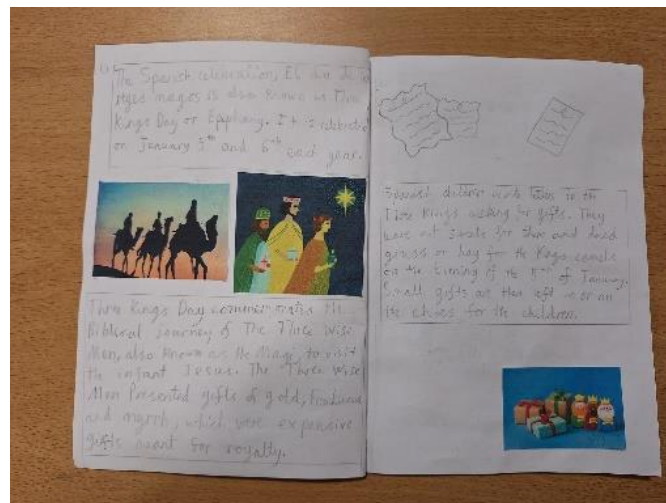 The Spanish celebration, El dia de
reyes magos is also known as Three
Kings Day or Epiphany. It is celebrated
on January 5th and 6th each year.
Three Kings Day commemorates the
Biblical journey of The Three Wise
Men, also known as the Magi, to visit
the infant Jesus. The Three Wise
Men Presented gifts of gold,
and myrrh, which were expensive
gifts meant for royalty.
Spanish children write to the
Three Kings wishing for gifts. They
out for them and dried
grass or hay for the Kings camels
on the evening of the 5th of January.
Small gifts are then left in or on
the shoes for the children.